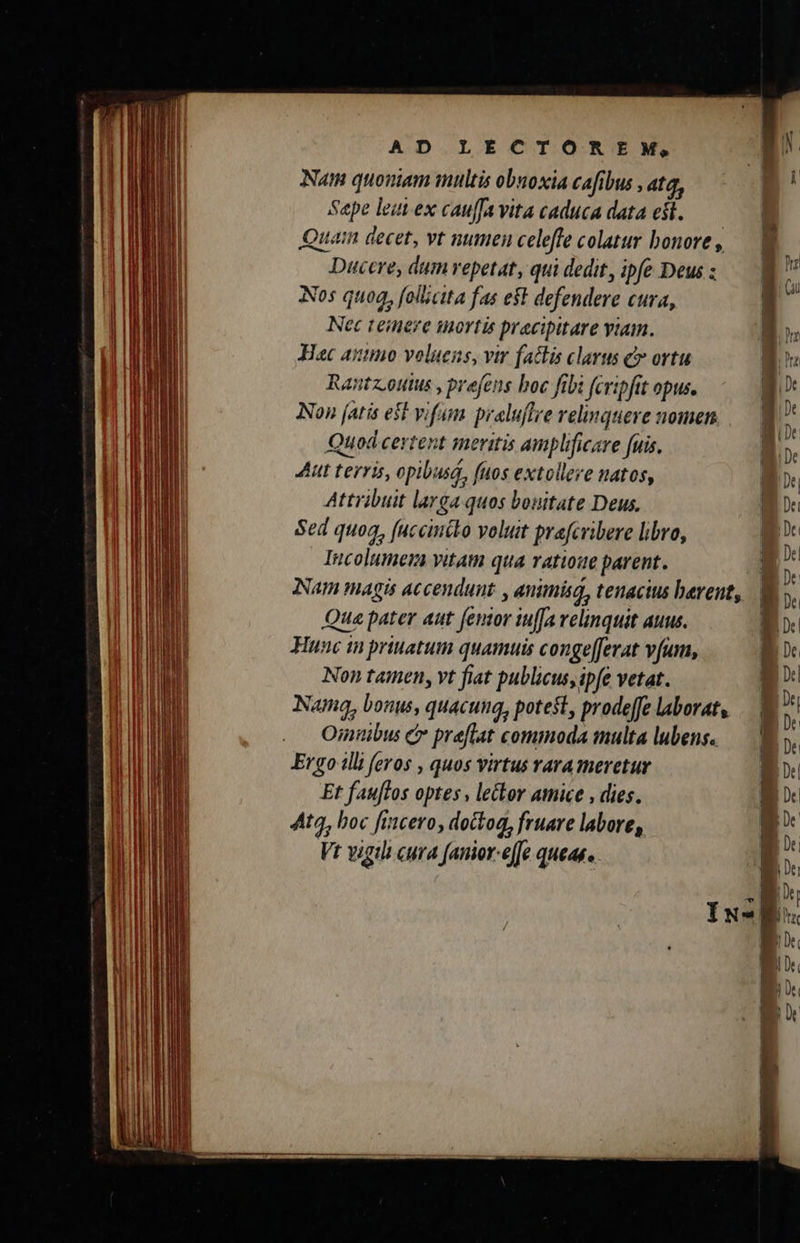 AD LECTOREM.
Nam quoniam multis obnoxia caſibus, atq́,
Sæpe leui ex cauſſa vita caduca data eſt.
Quam decet, vt numen celeſte colatur honore,
Ducere, dum repetat, qui dedit, ipſe Deus:
Nos quoq́, ſollicita fas eſt defendere cura,
Nec temere mortis præcipitare viam.
Hæc animo voluens, vir factis clarus & ortu
Rantzouius, præſens hoc ſibi ſcripſit opus.
Non ſatis eſt viſum præluſtre relinquere nomen
Quod certent meritis amplificare ſuis.
Aut terris, opibusq́, ſuos extollere natos,
Attribuit larga quos bonitate Deus.
Sed quoq́, ſuccincto voluit præſcribere libro,
Incolumem vitam qua ratione parent.
Nam magis accendunt, animisq́, tenacius hærent,
Quæ pater aut ſenior iuſſa relinquit auus.
Hunc in priuatum quamuis congeſſerat vſum,
Non tamen, vt fiat publicus, ipſe vetat.
Namq́, bonus, quacunq́, poteſt, prodeſſe laborat,
Omnibus & præſtat commoda multa lubens.
Ergo illi ſeros, quos virtus rara meretur
Et fauſtos optes, lector amice, dies.
Atq́, hoc ſincero, doctoq́, fruare labore,
Vt vigili cura ſanior eſſe queas.
IN-